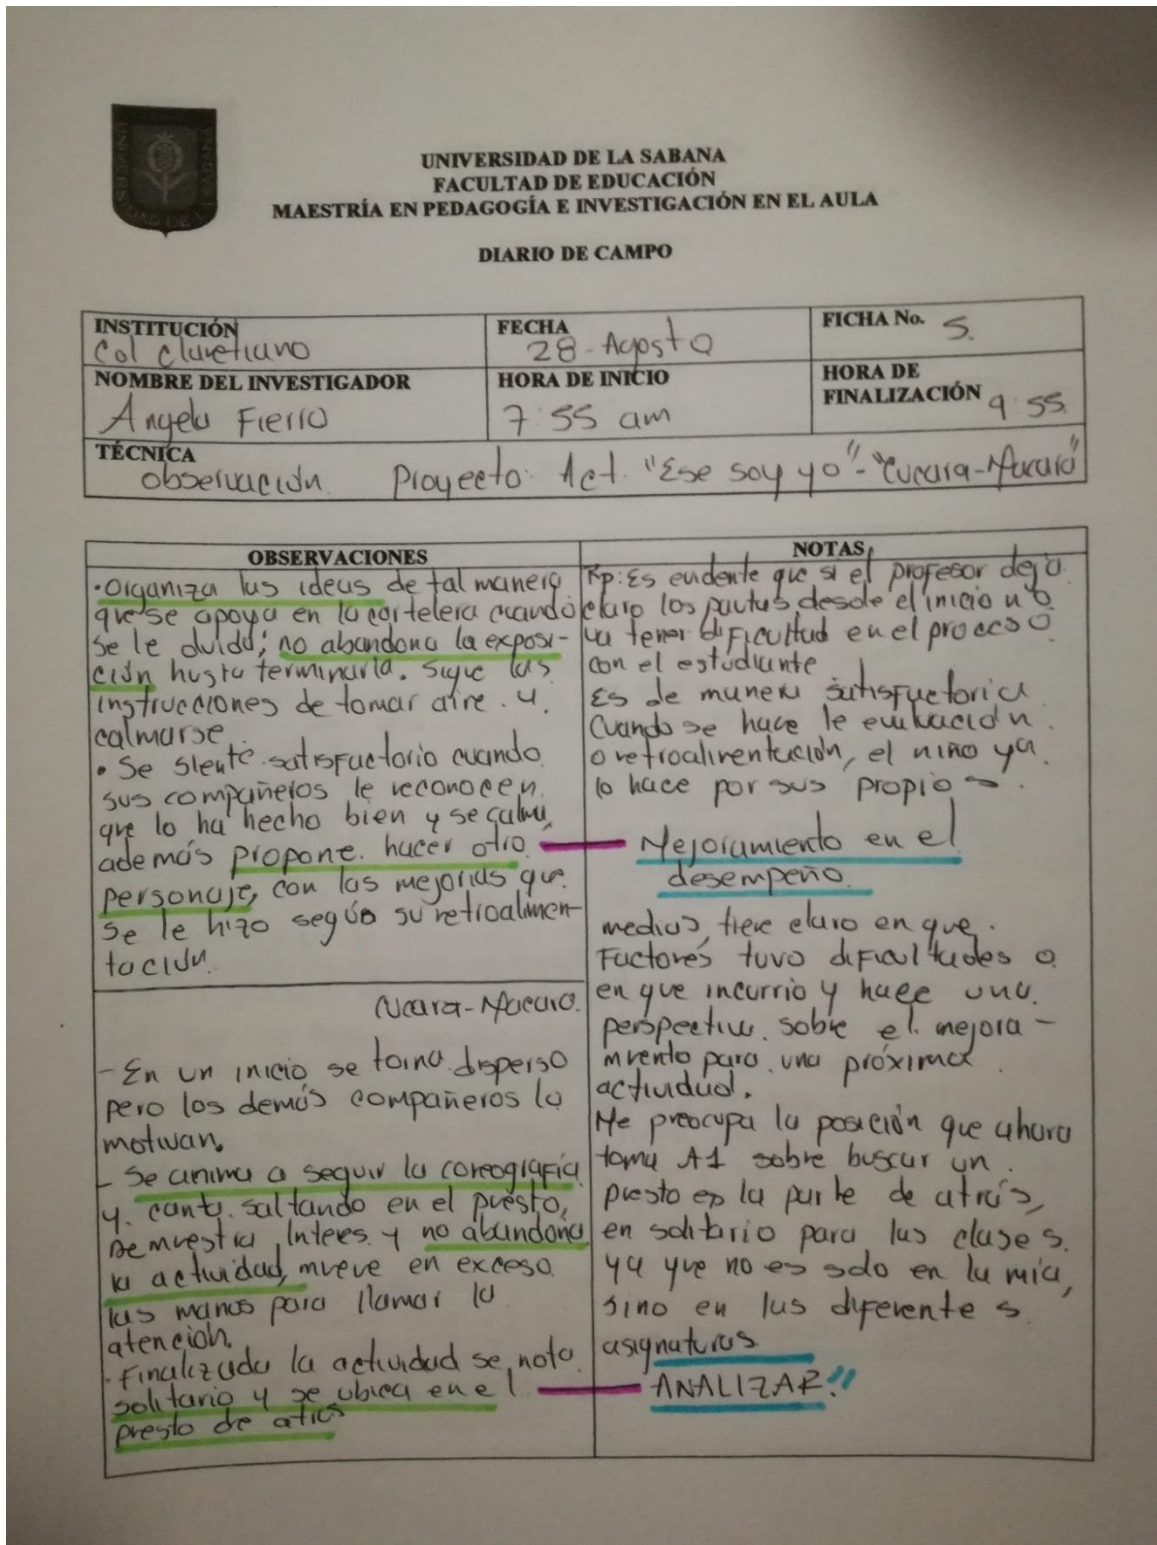 UNIVERSIDAD DE LA SABANA
FACULTAD DE EDUCACIÓN
MAESTRÍA EN PEDAGOGÍA E INVESTIGACIÓN EN EL AULA
DIARIO DE CAMPO
INSTITUCIÓN
Col Claretiano
FECHA
28 - Agosto
FICHA No. 5.
NOMBRE DEL INVESTIGADOR
Angela Fierro
HORA DE INICIO
7:55 am
HORA DE
FINALIZACIÓN 9:55
TÉCNICA
observación. Proyecto: Act. "Ese soy yo" - "Cucara-Macara"
OBSERVACIONES
• Organiza las ideas de tal manera
que se apoya en la cartelera cuando
se le olvida; no abandona la exposi-
ción hasta terminarla. Sigue las
instrucciones de tomar aire. y
calmarse
• Se siente satisfactorio cuando
sus compañeros le reconocen
que lo ha hecho bien y se calma,
además propone hacer otro
personaje, con las mejorias que
se le hizo según su retroalimen-
tación
Cucara-Macara.
- En un inicio se torna disperso
pero los demás compañeros lo
motivan.
- Se anima a seguir la coreografía
y. canta saltando en el puesto,
Demuestra Interes y no abandona
la actividad, mueve en exceso
las manos para llamar la
atención.
- Finalizada la actividad se nota
solitario y se ubica en el
presto de atras
NOTAS
Rp: Es evidente que si el profesor deja
claro las pautas desde el inicio no
va tener dificultad en el proceso
con el estudiante
Es de manera satisfactoria
Cuando se hace le evaluación
o retroalimentación, el niño ya
lo hace por sus propio →
Mejoramiento en el
desempeño.
medios, tiene claro en que
Factores tuvo dificultades o
en que incurrio y hace una
perspectiva sobre el mejora-
miento para una próxima
actividad.
Me preocupa la posición que ahora
toma A1 sobre buscar un
puesto en la parte de atrás,
en solitario para las clases.
ya que no es solo en la mía,
sino en las diferentes
asignaturas
ANALIZAR!!